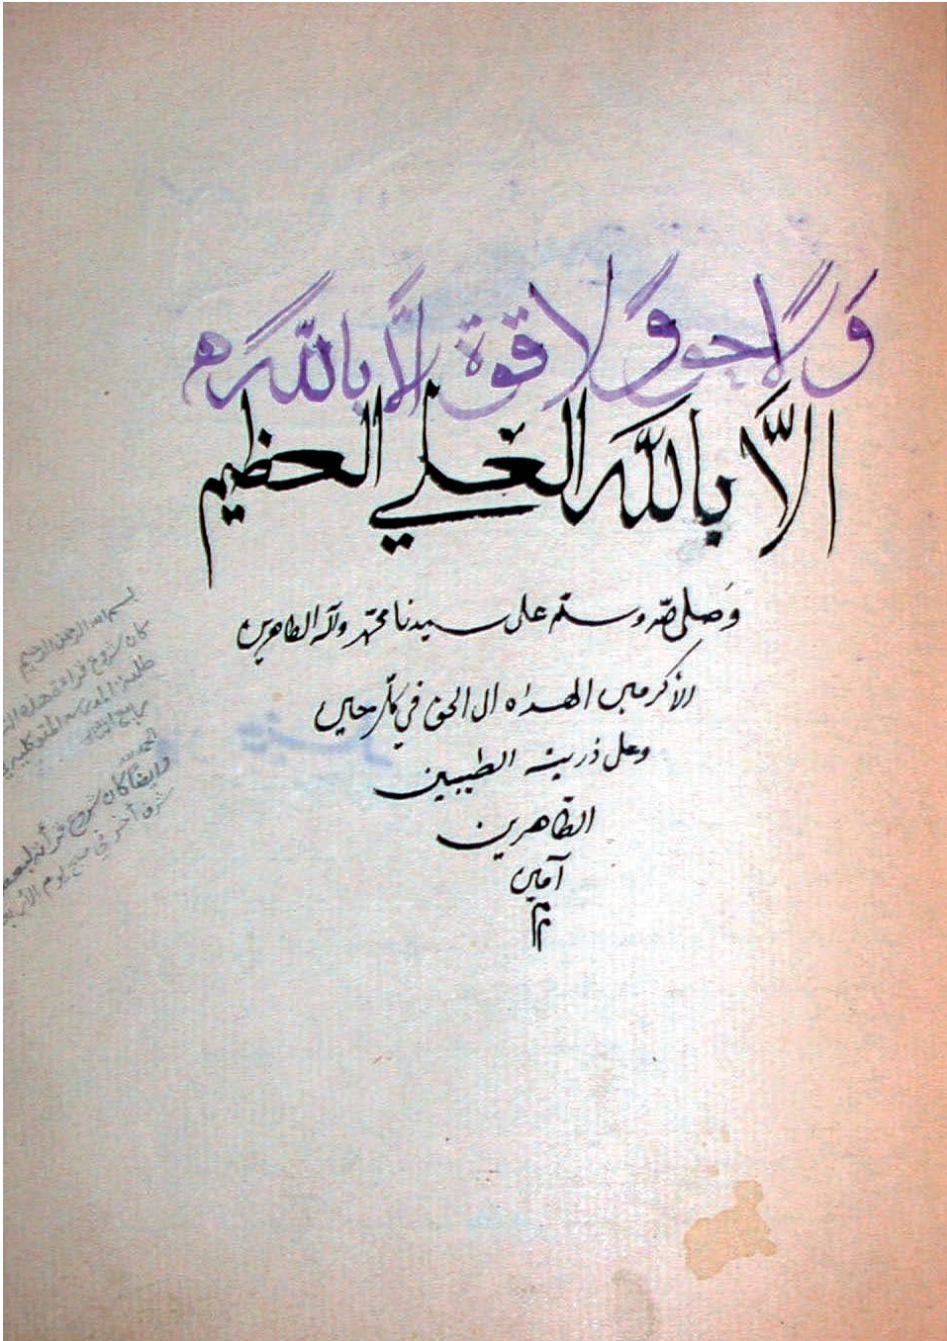 ولا حول ولا قوة إلا بالله
إلاّ بالله العلي العظيم
وَصلى الله وسلم على سيدنا محمد وآله الطاهرين
الأكرمين الهداه الى الحق في كل حين
وعلى ذريته الطيبين
الطاهرين
آمين
بسم الله الرحمن الرحيم
كان شروع قراءة هذه
طلبة المدرسه المتوكليه
وايضاً كان شروع قرأته
في صبح يوم